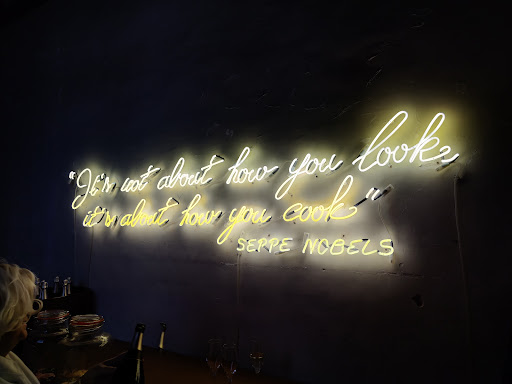 "It's not about how you look,
it's about how you cook"
SEPPE NOBELS